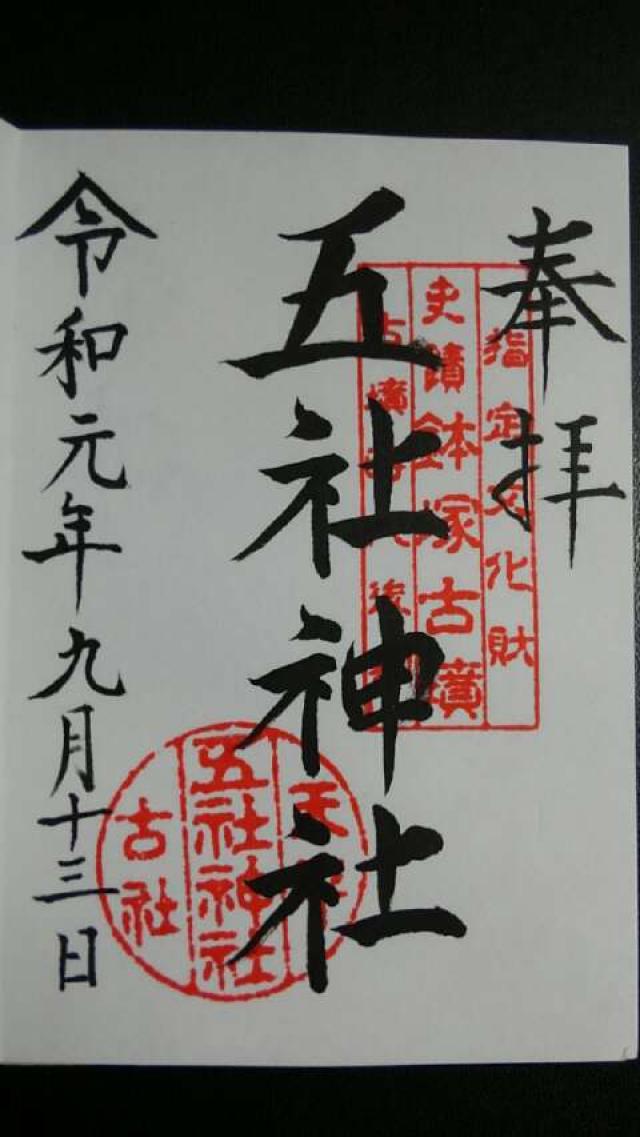 奉拝
指定文化財
史蹟鉢塚古墳
古墳
後
五社神社
天
五社神社
古社
令和元年九月十三日